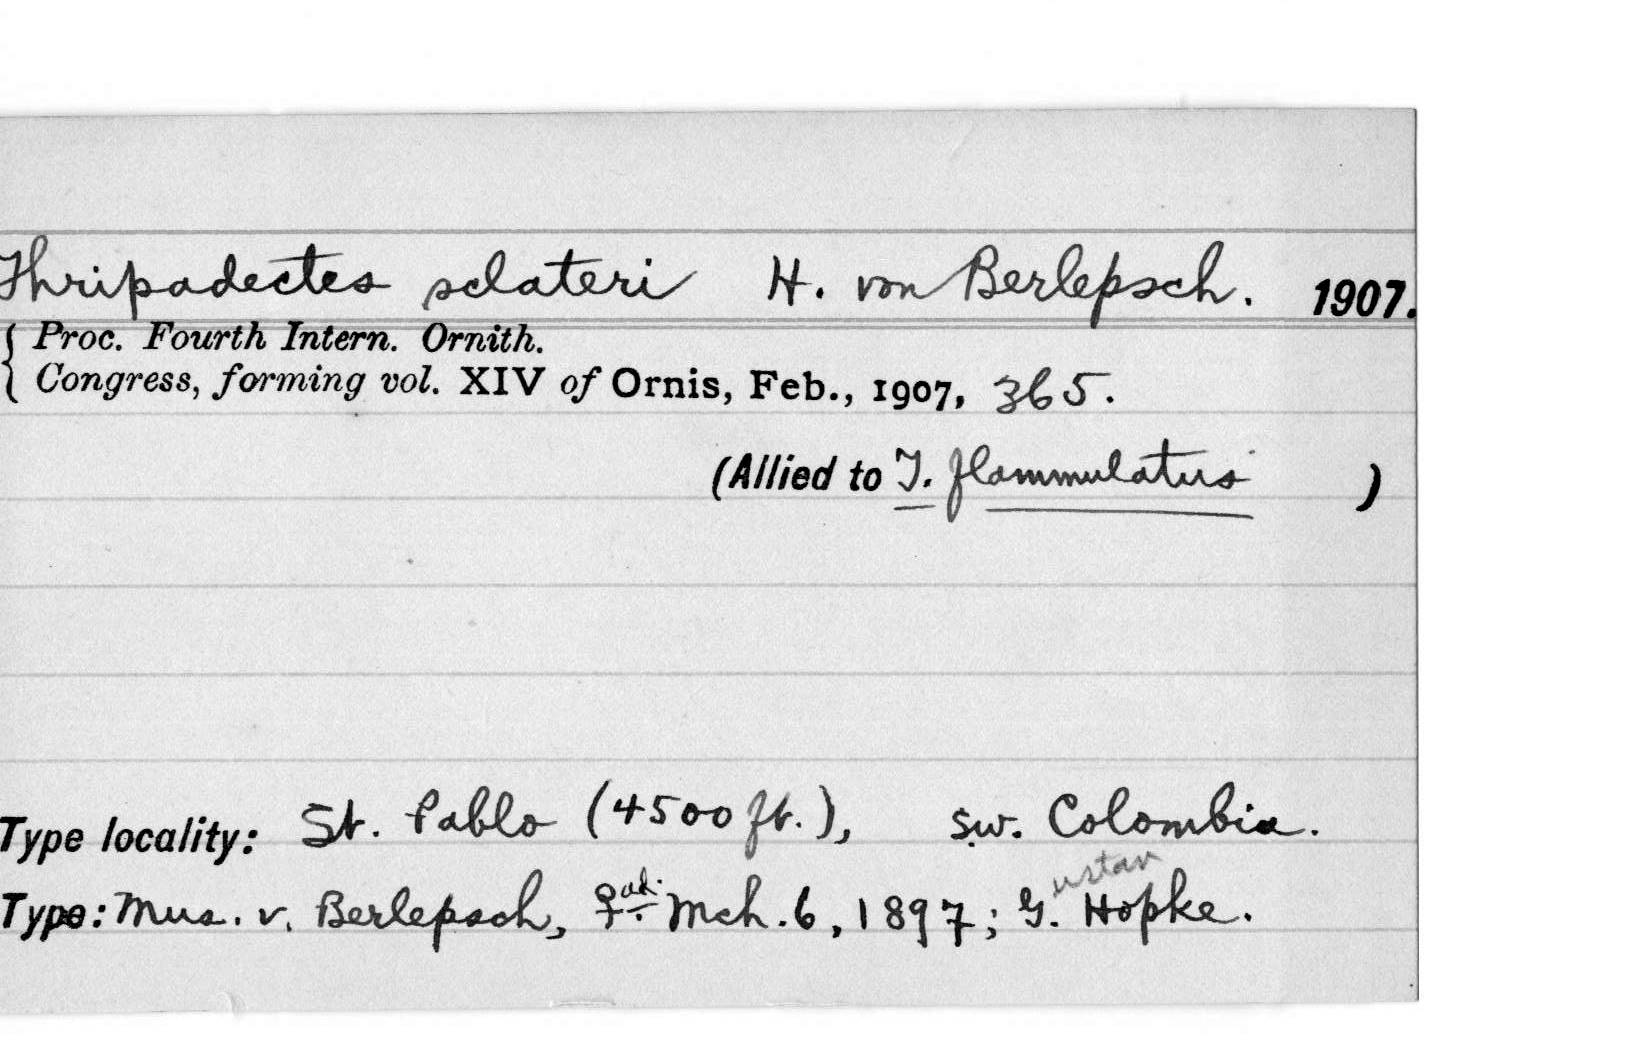 Thripadectes sclateri H. von Berlepsch. 1907.
{ Proc. Fourth Intern. Ornith.
Congress, forming vol. XIV of Ornis, Feb., 1907, 365.
(Allied to T. flammulatus )
Type locality: St. Pablo (4500 ft.), sw. Colombia.
ustav
Type: Mus. v. Berlepsch, ♀ ad. Mch. 6, 1897; G. Hopke.